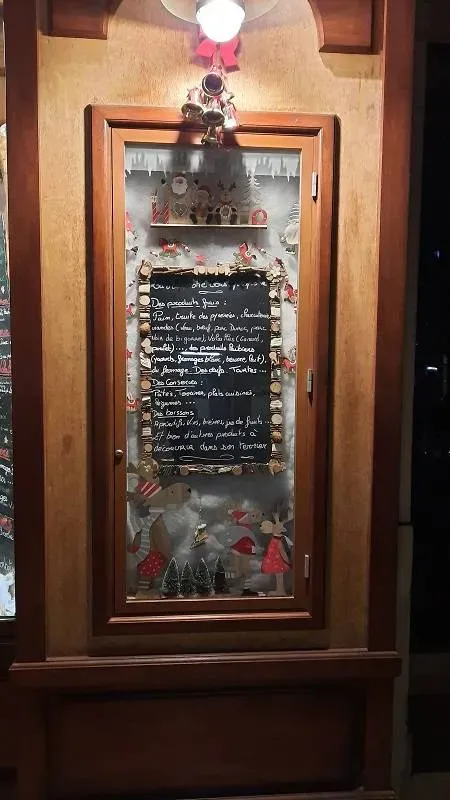 vous propose
Des produits frais :
Pain, truite des pyrénées, charcuterie,
viandes (veau, bœuf, porc Duroc, porc
Noir de bigorre), Volailles (Canard,
poulet)..., des produits laitiers
(yaourts, fromages blanc, beurre, lait),
du fromage. Des œufs. Tourtes ...
Des Conserves :
Pâtés, Terrines, plats cuisinés,
légumes ...
Des boissons
Apéritifs, Vins, bières, jus de fruits ...
Et bien d'autres produits à
découvrir dans son Terroir